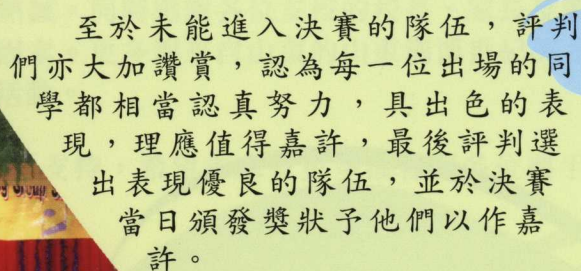 至於未能進入決賽的隊伍，評判
們亦大加讚賞，認為每一位出場的同
學都相當認真努力，具出色的表
現，理應值得嘉許，最後評判選
出表現優良的隊伍，並於決賽
當日頒發獎狀予他們以作嘉
許。